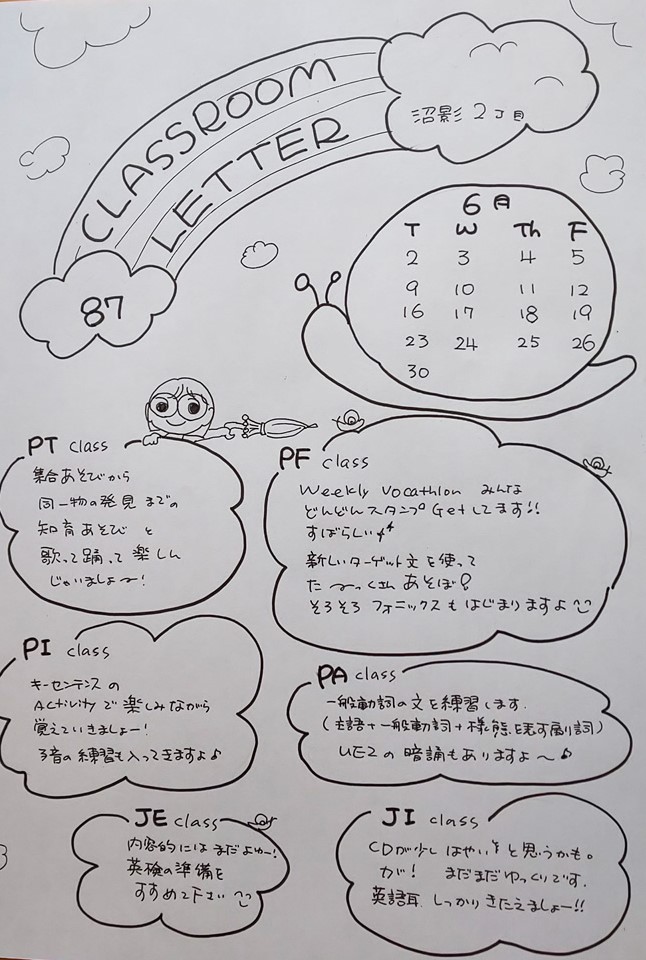 CLASSROOM
LETTER
沼影2丁目
87
6月
T W Th F
2 3 4 5
9 10 11 12
16 17 18 19
23 24 25 26
30
PT class
集合あそびから
同一物の発見までの
知育あそびと
歌って踊って楽しん
じゃいましょ〜!
PF class
Weekly Vocathlon みんな
どんどんスタンプGetしてます!!
すばらしい
新しいターゲット文を使って
た〜っくさんあそぼ!
そろそろフォニックスもはじまりますよ
PI class
キーセンテンスの
Activityで楽しみながら
覚えていきましょー!
3音の練習も入ってきますよ♪
PA class
一般動詞の文を練習します.
(主語+一般動詞+様態を表す副詞)
の暗誦もありますよ〜♪
JE class
内容的にはまだよゆー!
英検の準備を
すすめて下さい
JI class
CDが少しはやい と思うかも。
が! まだまだゆっくりです.
英語耳 しっかりきたえましょー!!